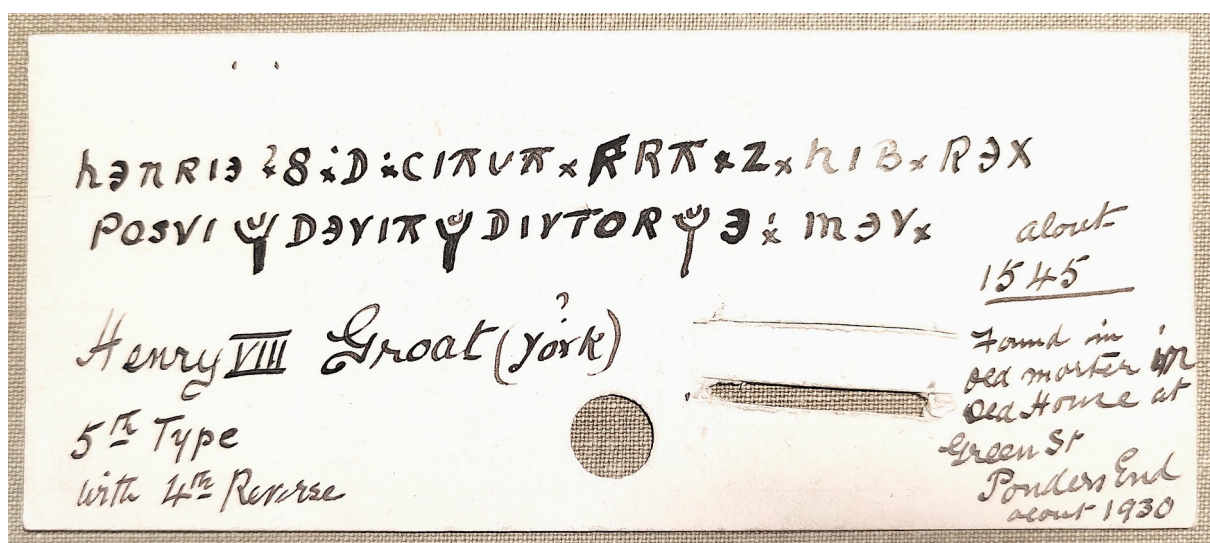 hƎnRIƎ ?8 D CIAVA × FRA × Z × hIB × RƎX
POSVI DƎVIA DIVTOR Ǝ mƎV×
about
1545
Henry VIII Groat (York)
?
5th Type
with 4th Reverse
Found in
old morter in
old House at
Green St
Ponders End
about 1930